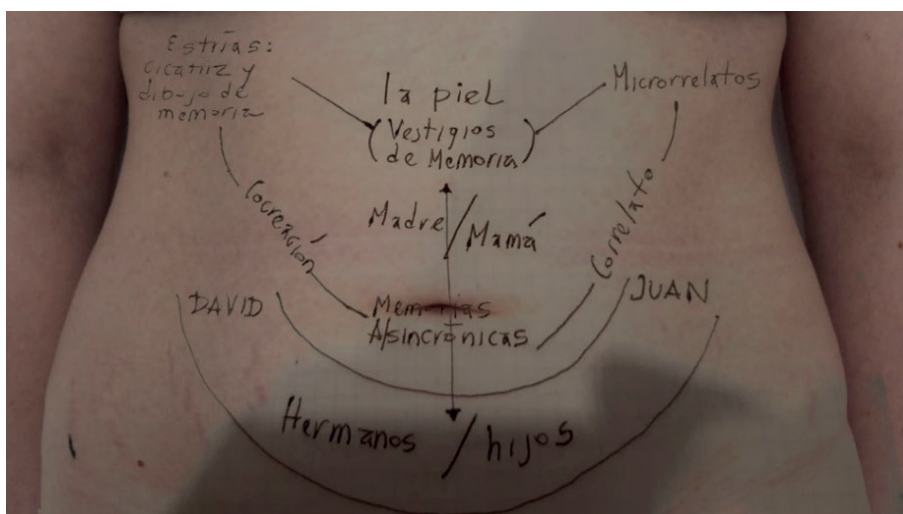 Estrías:
cicatriz y
dibujo de
memoria
la piel
(Vestigios
de Memoria)
Microrrelatos
Cocreación
Madre/Mamá
Correlato
DAVID
Memorias
A/sincrónicas
JUAN
Hermanos/hijos